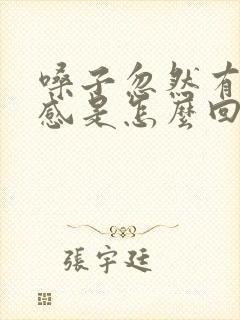 嗓子忽然有
感是怎麼回
張宇廷